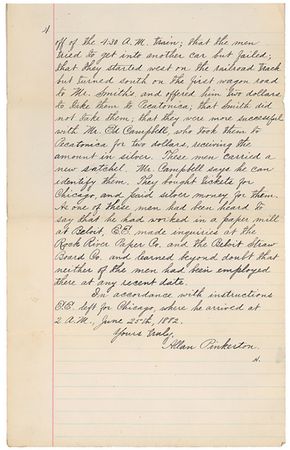 4
off of the 4:30 A.M. train; that the men
tried to get into another car but failed;
that they started west on the railroad track
but turned south on the first wagon road
to Mr. Smith's and offered him two dollars
to take them to Pecatonica; that Smith did
not take them; that they were more successful
with Mr. Ed. Campbell, who took them to
Pecatonica for two dollars, receiving the
amount in silver. These men carried a
new satchel. Mr. Campbell says he can
identify them. They bought tickets for
Chicago, and paid silver money for them.
As one of these men had been heard to
say that he had worked in a paper mill
at Beloit, E.E. made inquiries at the
Rock River Paper Co. and the Beloit Straw
Board Co. and learned beyond doubt that
neither of the men had been employed
there at any recent date.
In accordance with instructions
E.E. left for Chicago, where he arrived at
2 A.M., June 25th, 1882.
Yours truly,
Allan Pinkerton.